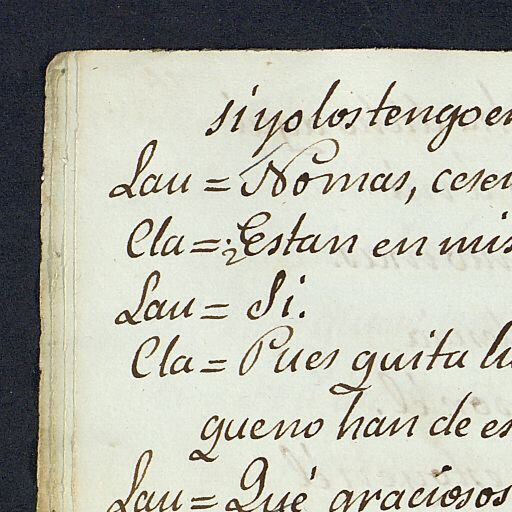 si yo los tengo en
Lau = No mas, cesen
Cla = ¿Estan en mis
Lau = Si.
Cla = Pues quita
que no han de es
Lau = Qué graciosos